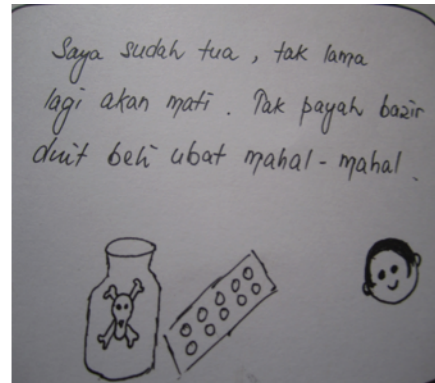 Saya sudah tua, tak lama
lagi akan mati. Tak payah bazir
duit beli ubat mahal-mahal.